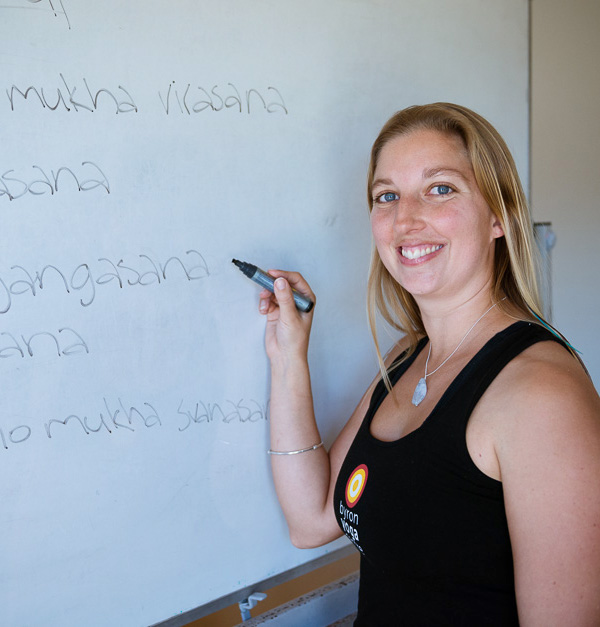 mukha virasana
asana
jangasana
ana
mukha svanasan
byron
yoga